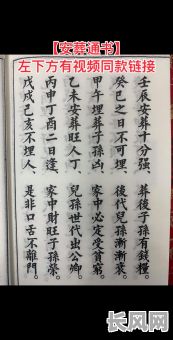 【安葬通书】
左下方有视频同款链接
壬辰安葬十分强、葬後子孫有錢糧。
癸巳之日不可埋、後代兒孫漸漸衰。
甲午埋葬子孫凶、家中必定受貧窮。
乙未安葬旺人丁、兒孫世代出公卿。
丙申丁酉二日逢、家中財旺子孫榮。
戊戌己亥不埋人、是非口舌不離門。
长风网